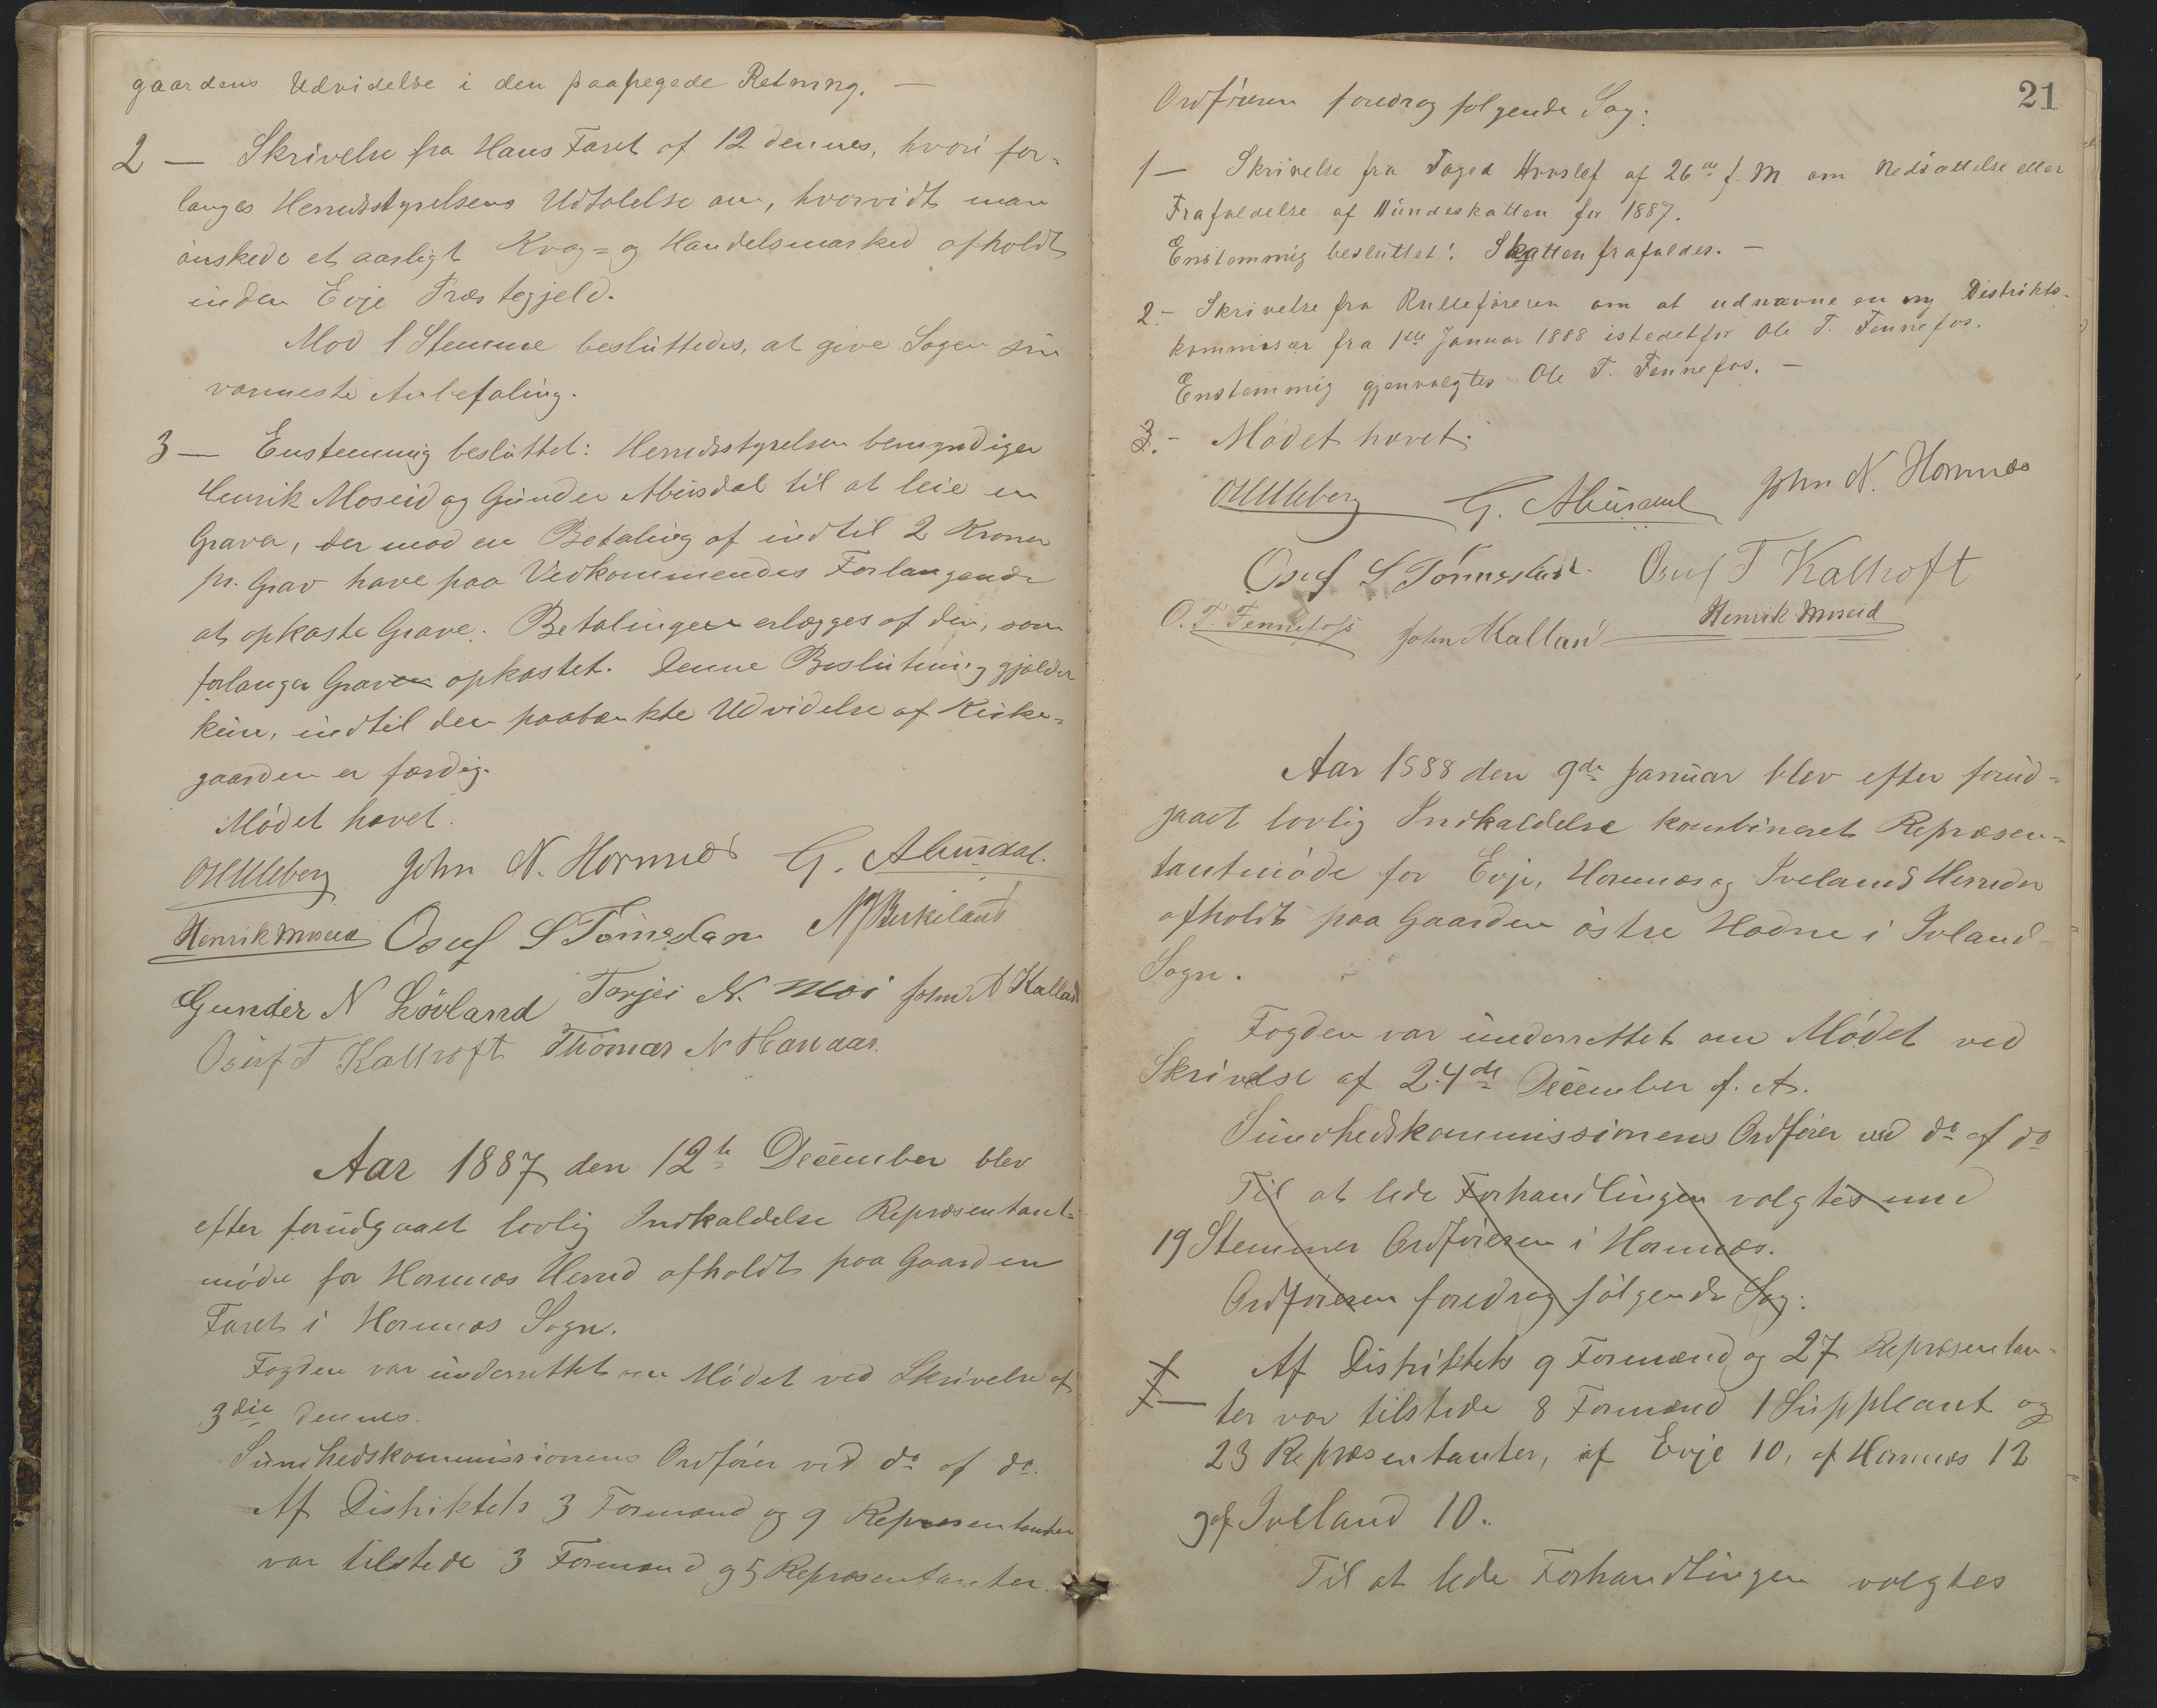 gaardens Udvidelse i den paapegede Retning. —
2 — Skrivelse fra Hans Faret af 12 dennes, hvori for-
langes Herredsstyrelsens Udtalelse om, hvorvidt man
ønskede et aarligt Kvæg- og Handelsmarked afholdt
inden Evje Præstegjeld.
Mod 1 Stemme besluttedes, at give Sagen sin
varmeste Anbefaling.
3 — Enstemmig besluttet: Herredsstyrelsen bemyndiger
Henrik Moseid og Gunder Abusdal til at leie en
Graver, der mod en Betaling af indtil 2 Kroner
pr. Grav have paa Vedkommendes Forlangende
at opkaste Grave. Betalingen erlægges af den, som
forlanger Graven opkastet. Denne Beslutning gjælder
kun, indtil den paatænkte Udvidelse af Kirke-
gaarden er færdig.
Mødet hævet.
OUUleberg John N. Hornnes G. Abusdal.
Henrik Moseid Osuf S Tønnesland N Birkeland
Gunder N Løvland Torjei N. Moi John A Kalland
Osuf T Kallhoft Thomas N Hanaas.
Aar 1887 den 12te December blev
efter forudgaaet lovlig Indkaldelse Repræsentant-
møde for Hornnæs Herred afholdt paa Gaarden
Faret i Hornnæs Sogn.
Fogden var underrettet om Mødet ved Skrivelse af
3die dennes.
Sundhedskommissionens Ordfører ved do af do.
Af Distriktets 3 Formænd og 9 Repræsentanter
var tilstede 3 Formænd og 5 Repræsentanter.
21
Ordføreren foredrog følgende Sag:
1 — Skrivelse fra Foged Hvoslef af 26de f. M om Nedsættelse eller
Frafaldelse af Hundeskatten for 1887.
Enstemmig besluttet: Skatten frafaldes. —
2. — Skrivelse fra Rulleføreren om at udnævne en ny Distrikts-
kommisær fra 1ste Januar 1888 istedetfor Ole T. Fennefos.
Enstemmig gjenvalgtes Ole T. Fennefos. —
3. — Mødet hævet.
OUUleberg G. Abusdal John N. Hornnes
Osuf S Tønnesland. Osuf T Kallhoft
O. T. Fennefoss John Kalland Henrik Moseid
Aar 1888 den 9de Januar blev efter forud-
gaaet lovlig Indkaldelse kombineret Repræsen-
tantmøde for Evje, Hornnæs og Ivelands Herreder
afholdt paa Gaarden østre Hodne i Iveland
Sogn.
Fogden var underrettet om Mødet ved
Skrivelse af 24de December f. A.
Sundhedskommissionens Ordfører ved do af do
Til at lede Forhandlingen valgtes med
19 Stemmer Ordføreren i Hornnæs.
Ordføreren foredrog følgende Sag:
Af Distriktets 9 Formænd og 27 Repræsentan-
ter var tilstede 8 Formænd 1 Suppleant og
23 Repræsentanter, af Evje 10, af Hornnæs 12
og af Iveland 10.
Til at lede Forhandlingen valgtes